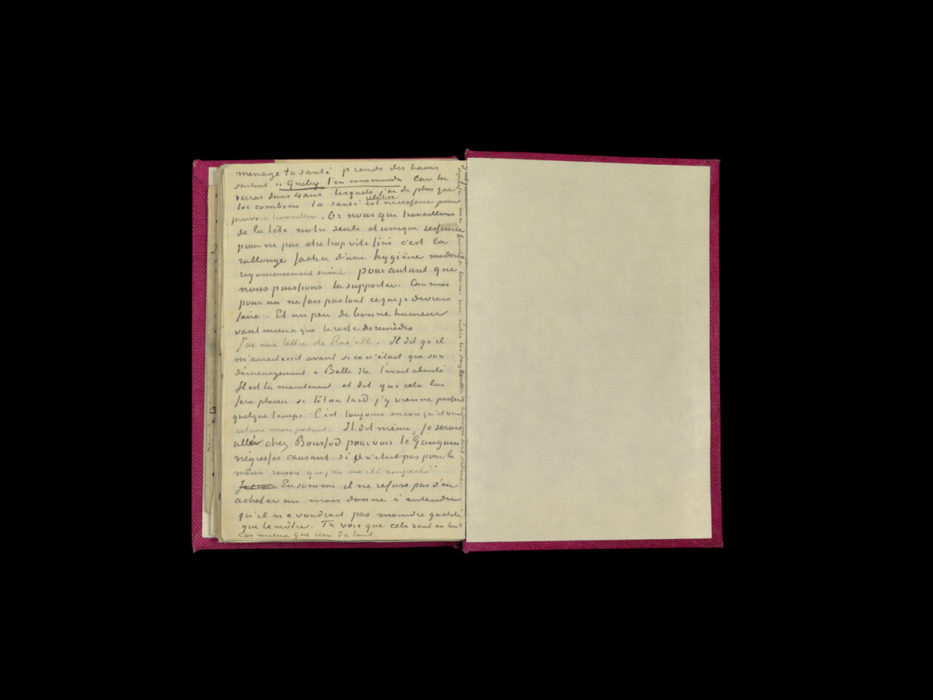 menage ta santé prends des bains
surtout si Gruby t'en commande Car tu
verras dans 4 ans lesquels j'ai de plus que
toi combien la santé relative est nécessaire pour
pouvoir travailler. Or nous qui travaillons
de la tête notre seule et unique ressource
pour ne pas être trop vite fini c'est la
rallonge factice d'une hygiène moderne
rigoureusement suivie pour autant que
nous puissions la supporter. Car moi
pour un ne fais pas tout ce que je devrais
faire. Et un peu de bonne humeur
vaut mieux que le reste des remèdes
J'ai une lettre de Russell. Il dit qu'il
m'aurait écrit avant si ce n'était que son
déménagement à Belle Ile l'avait absorbé
Il est là maintenant et dit que cela lui
fera plaisir si tôt ou tard j'y vienne passer
quelque temps. C'est toujours encore qu'il veut
refaire mon portrait. Il dit même, je serais
allé chez Boussod pour voir le Gauguin
négresses causant si il n'était pas pour la
même raison que j'en
En somme il ne refuse pas d'en
acheter un mais donne à entendre
qu'il ne voudrait pas moindre qualité
que le nôtre. Tu vois que cela vaut en tout
cas mieux que rien du tout.